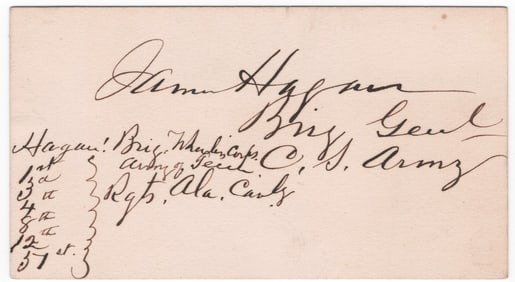 James Hagan
Brig Genl
C. S. Army
Hagan's Brig. Wheeler's Corps.
Army of Tenn
1st
3d
4th
8th
12th
51st.
Rgts. Ala. Cavly